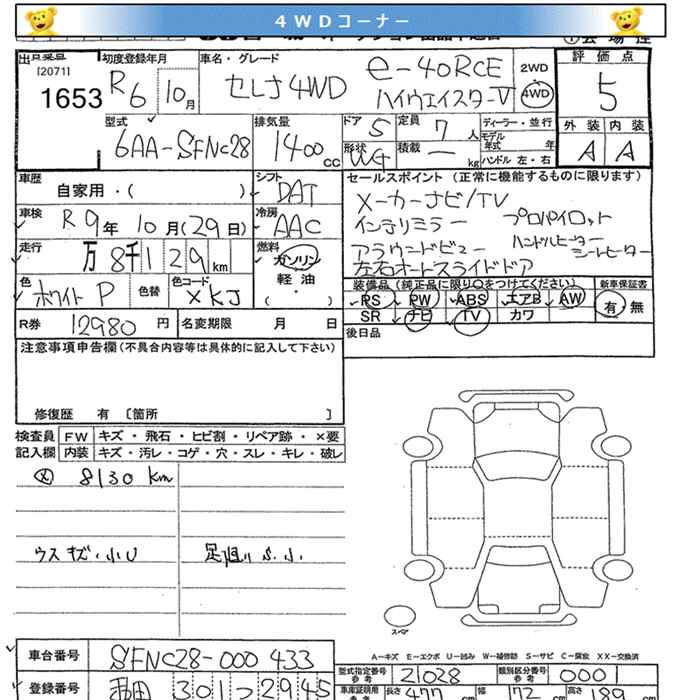 4WDコーナー
出品票番
[2071]
1653
初度登録年月
R6 10月
車名・グレード
セレナ4WD
e-4ORCE
ハイウェイスターV
2WD
4WD
評価点
5
型式
6AA-SFNC28
排気量
1400cc
ドア 5
定員 7人
形状 WG
積載 ー kg
ディーラー・並行
モデル年式 年
ハンドル 左・右
外装 内装
A A
車歴
自家用・( )
シフト
DAT
車検 R9年10月(29日)
冷房
AAC
走行
万8千129km
燃料
ガソリン
軽油
・( )
色
ホワイトP
色替
色コード
XKJ
セールスポイント (正常に機能するものに限ります)
メーカーナビ/TV
インテリミラー プロパイロット
アラウンドビュー ハンドルヒーター シートヒーター
左右オートスライドドア
装備品(純正品に限り○をつけてください)
新車保証書
PS PW ABS エアB AW
有・無
SR ナビ TV カワ
R券 12980円
名変期限 月 日
後日品
注意事項申告欄(不具合内容等は具体的に記入して下さい)
修復歴 有 〔箇所 〕
検査員記入欄
FW キズ・飛石・ヒビ割・リペア跡・×要
内装 キズ・汚レ・コゲ・穴・スレ・キレ・破レ
8130 Km
ウスキズ・小U
足廻りS.小
スペア
A−キズ E−エクボ U−凹み W−補修跡 S−サビ C−腐食 XX−交換済
車台番号 SFNC28-000433
型式指定番号 参考 21028
類別区分番号 参考 0001
登録番号
301
2945
車庫証明用 参考
長さ 477cm
幅 172cm
高さ